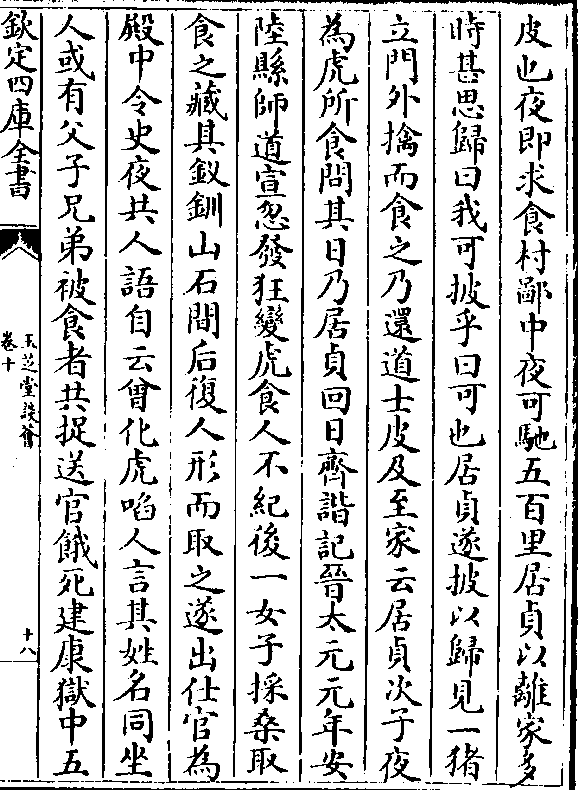 皮也夜即求食村鄙中夜可馳五百里居貞以離家多
時甚思歸曰我可披乎曰可也居貞遂披以歸見一猪
立門外擒而食之乃還道士皮及至家云居貞次子夜
為虎所食問其日乃居貞回日齊諧記晉太元元年安
陸縣師道宣忽發狂變虎食人不紀後一女子採桑取
食之藏其釵釧山石間后復人形而取之遂出仕官為
殿中令史夜共人語自云曾化虎啗人言其姓名同坐
人或有父子兄弟被食者共捉送官餓死建康獄中五
欽定四庫全書
玉芝堂談薈
卷十
十八